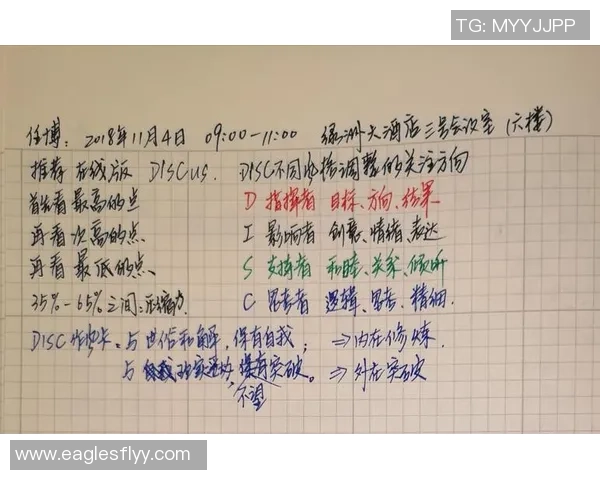 TG: MYYJJPP
任博: 2018年11月4日 09:00-11:00 绿洲大酒店三号会议室 (六楼)
推荐在线版 DISCus. DISC不同风格调整的关注方向
首先看最高的点 D 指挥者 目标、方向、结果
再看次高的点、 I 影响者 创意、情绪、表达
再看最低的点、 S 支持者 和睦、关系、倾听
35%-65%之间: 压缩 C 思考者 逻辑、思考、精细.
DISC 与世俗和解, 保有自我; ⇒内在修炼.
与 突破。 ⇒外在突破
不望
www.eaglesflyy.com